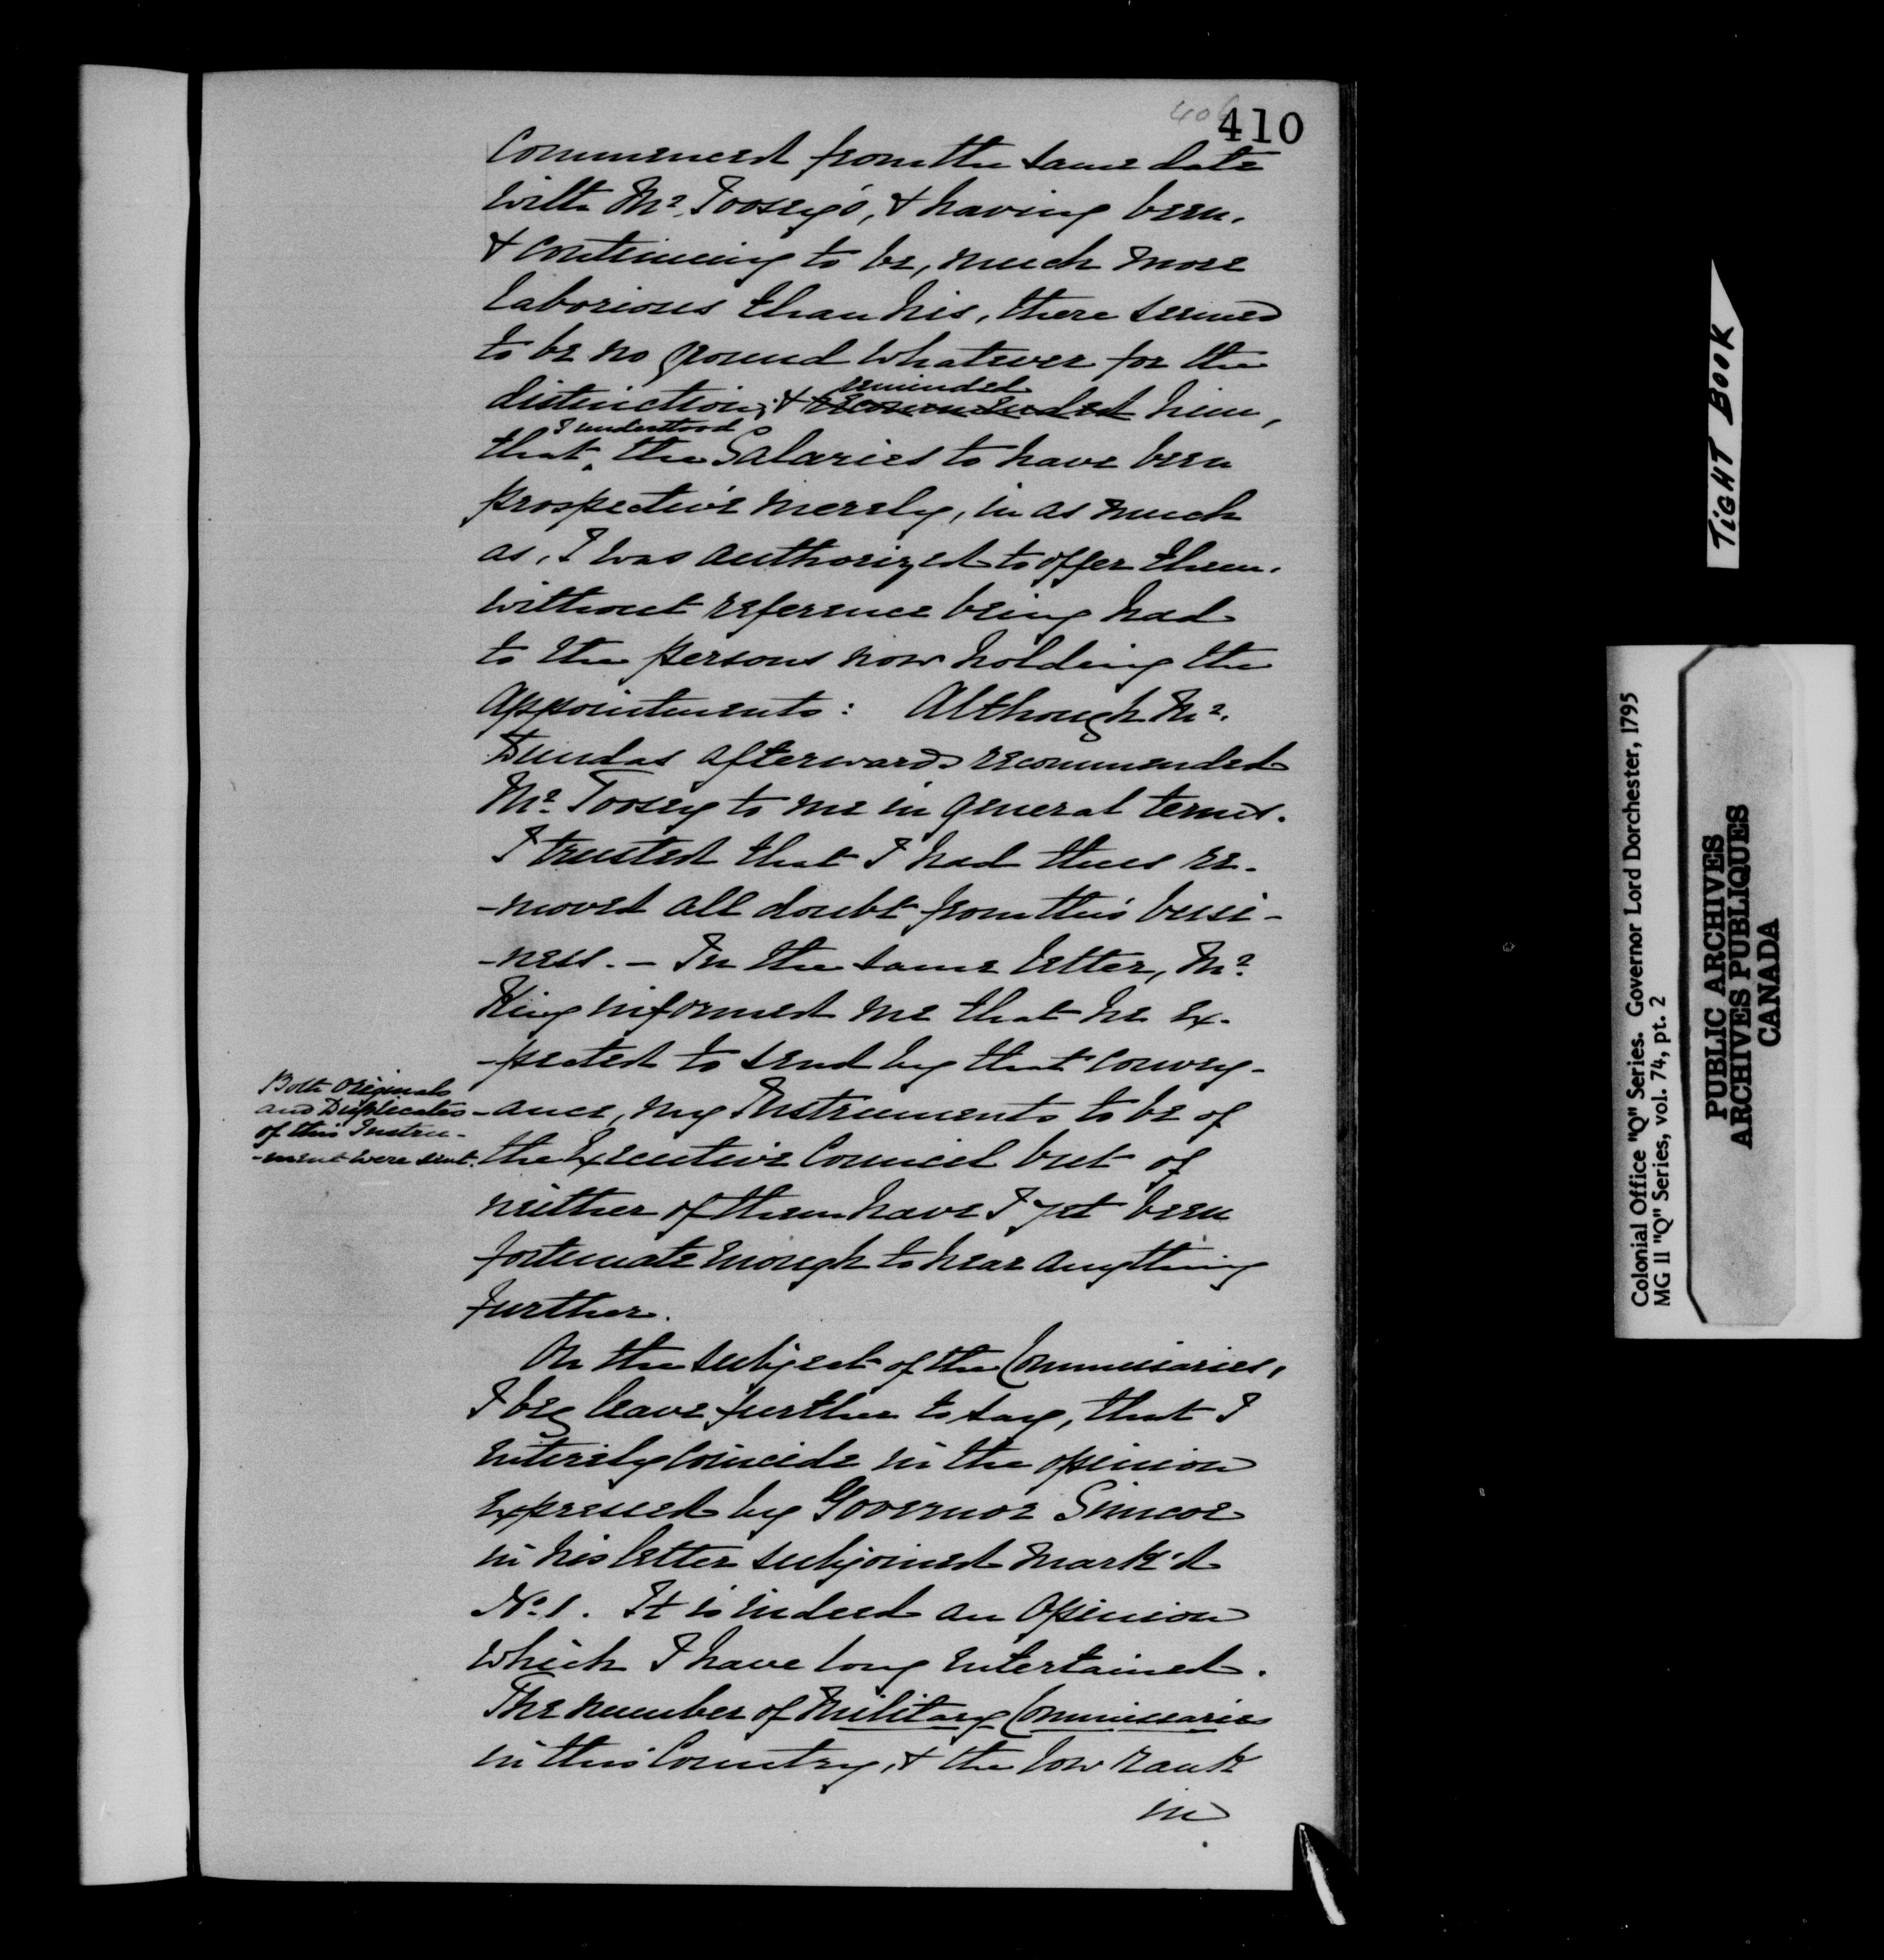 406
410
Commenced from the same date
with Mr. Toosey's, & having been,
& continuing to be, much more
laborious than his, there seemed
to be no ground whatever for the
reminded
distinction; & recommended him,
I understood
that the Salaries to have been
prospective merely, in as much
as, I was authorized to offer them,
without reference being had
to the persons now holding the
appointments: Although Mr.
Dundas afterwards recommended
Mr. Toosey to me in general terms.
I trusted that I had thus re-
-moved all doubt from this busi-
-ness. - In the same letter, Mr.
King informed me that he ex-
-pected to send by that convey-
-ance, my Instruments to be of
the Executive Council but of
neither of them have I yet been
fortunate enough to hear anything
further.
Both Originals
and Duplicates
of this Instru-
-ment were sent.
On the subject of the Commissaries,
I beg leave further to say, that I
entirely coincide in the opinion
expressed by Governor Simcoe
in his letter subjoined mark'd
No. 1. It is indeed an opinion
which I have long entertained.
The number of Military Commissaries
in this Country, & the low rank
in
TIGHT BOOK
Colonial Office "Q" Series. Governor Lord Dorchester, 1795
MG 11 "Q" Series, vol. 74, pt. 2
PUBLIC ARCHIVES
ARCHIVES PUBLIQUES
CANADA